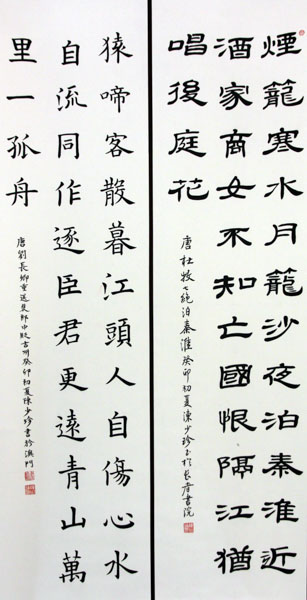 煙籠寒水月籠沙夜泊秦淮近
酒家商女不知亡國恨隔江猶
唱後庭花
唐杜牧七絕泊秦淮癸卯初夏陳少珍書於長書院
猿啼客散暮江頭人自傷心水
自流同作逐臣君更遠青山萬
里一孤舟
唐劉長卿重送裴郎中貶吉州癸卯初夏陳少珍書於澳門